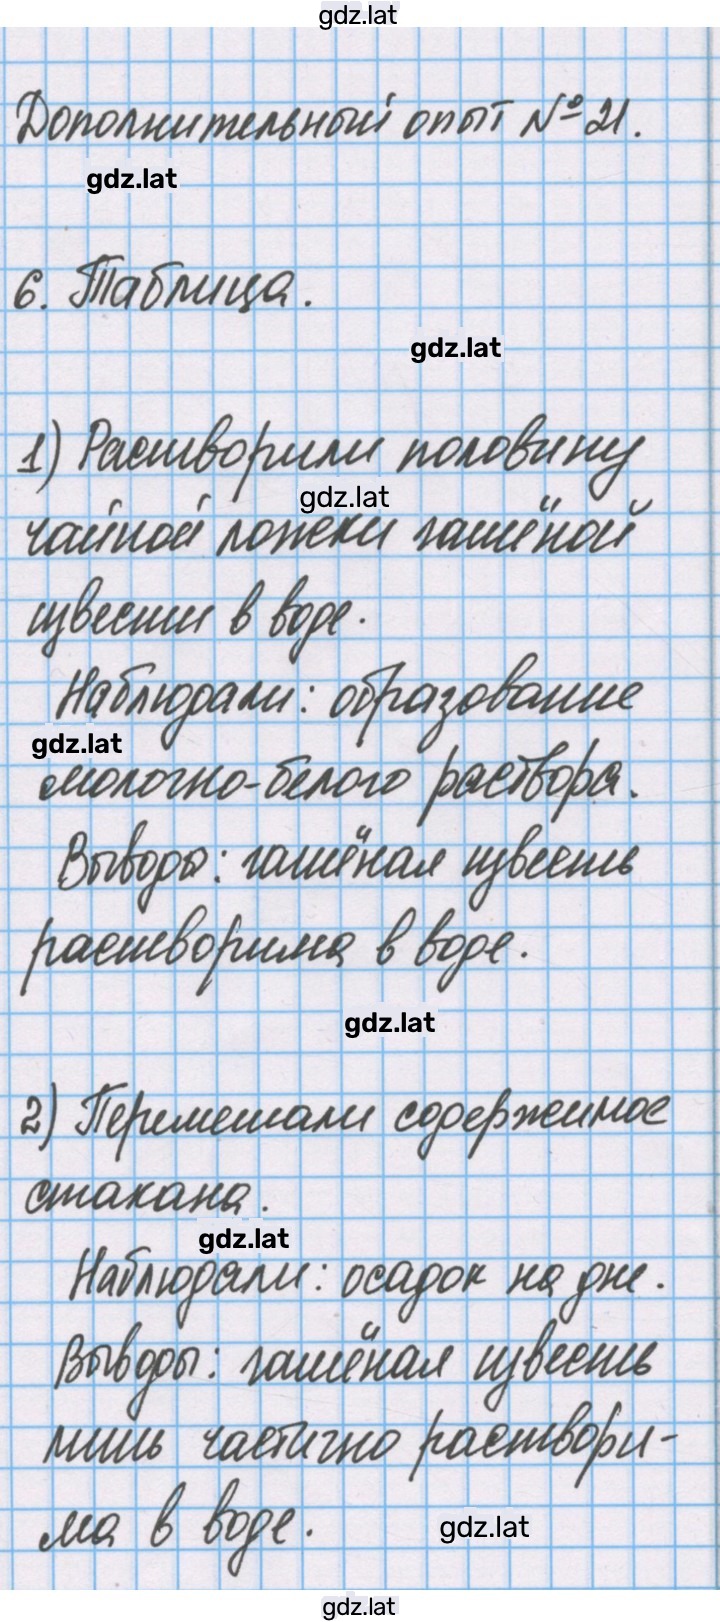 gdz.lat
Дополнительный опыт №21.
gdz.lat
6. Таблица.
gdz.lat
1) Растворили половину
gdz.lat
чайной ложки гашёной
извести в воде.
Наблюдали: образование
gdz.lat
молочно-белого раствора.
Выводы: гашёная известь
растворима в воде.
gdz.lat
2) Перемешали содержимое
стакана.
gdz.lat
Наблюдали: осадок на дне.
Выводы: гашёная известь
лишь частично раствори-
ма в воде.
gdz.lat
gdz.lat